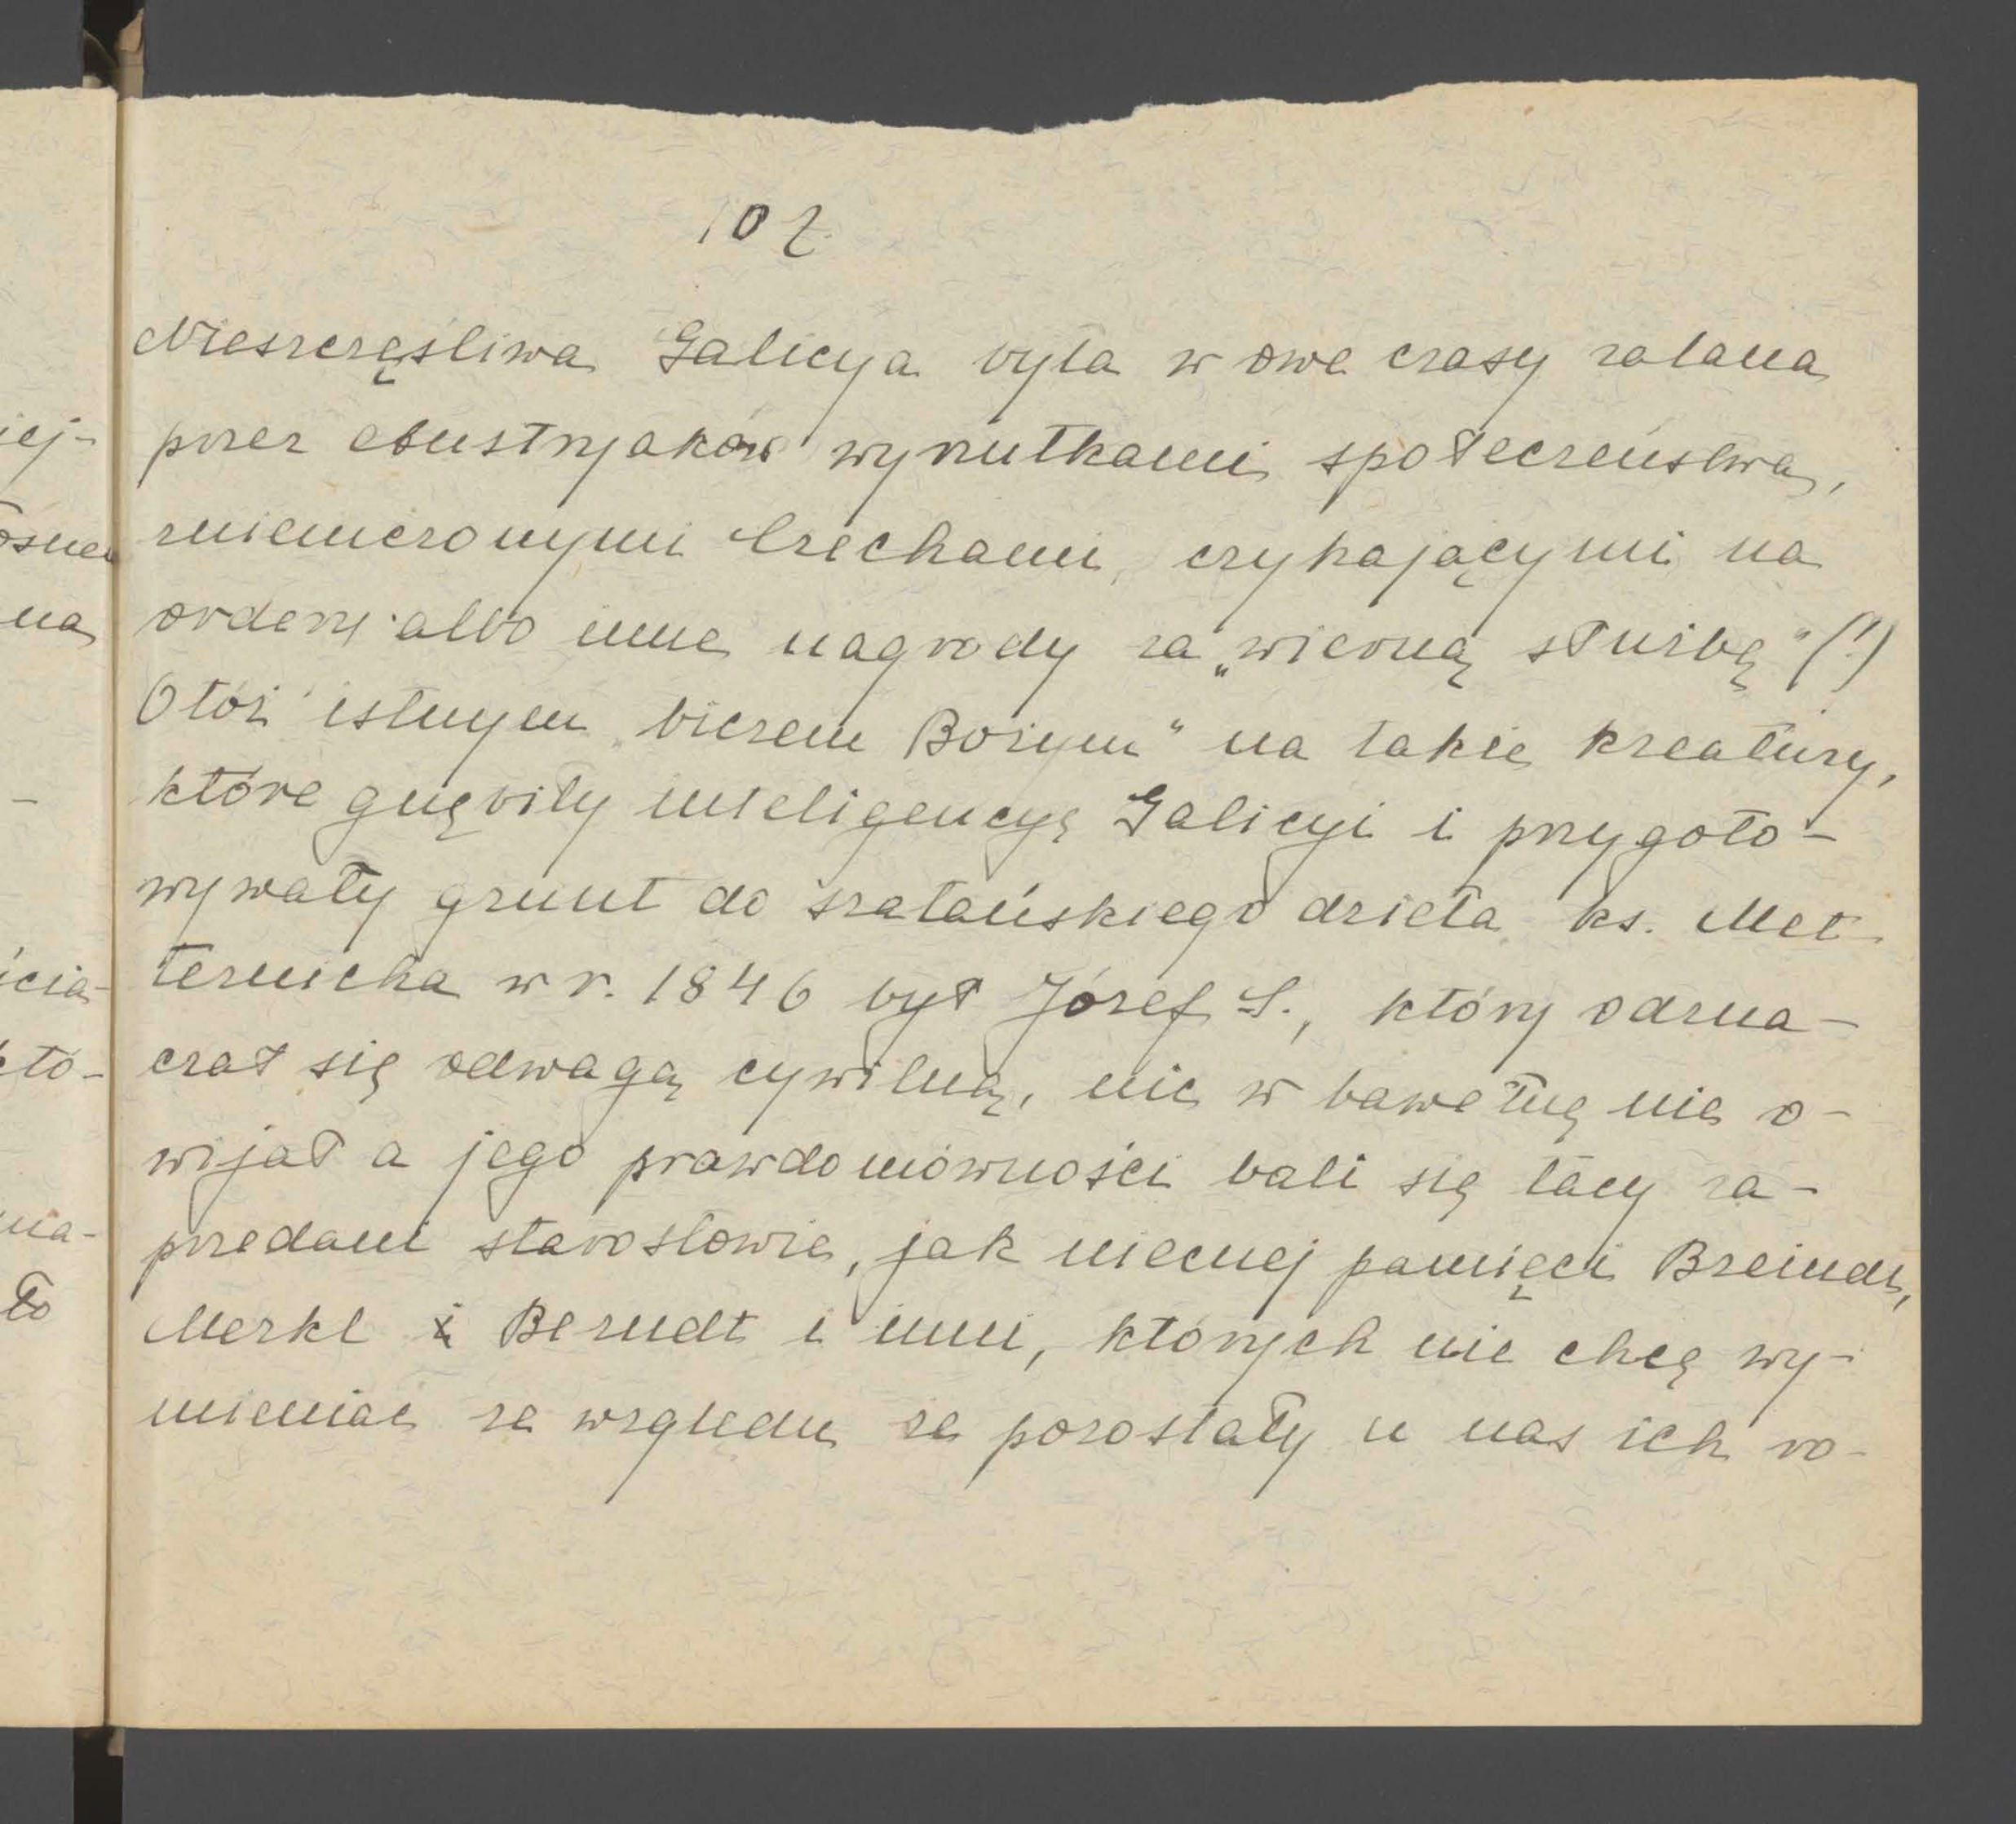 102.
Nieszczęśliwa Galicya była w owe czasy zalana
iej- przez Austryaków wyrzutkami społeczeństwa,
zniemczonymi Czechami, czyhającymi na
na ordery albo inne nagrody za „wierną służbę" (!)
Otóż istnym „biczem Bożym" na takie kreatury,
- które gnębiły inteligencyę Galicyi i przygoto-
wywały grunt do szatańskiego dzieła ks. Met-
ternicha w r. 1846 był Józef S., który odzna-
czał się odwagą cywilną, nic w bawełnę nie o-
wijał a jego prawdomówności bali się tacy za-
przedani starostowie, jak niecnej pamięci Breindl,
Merkl i Berndt i inni, których nie chcę wy-
mieniać ze względu ze pozostały u nas ich ro-